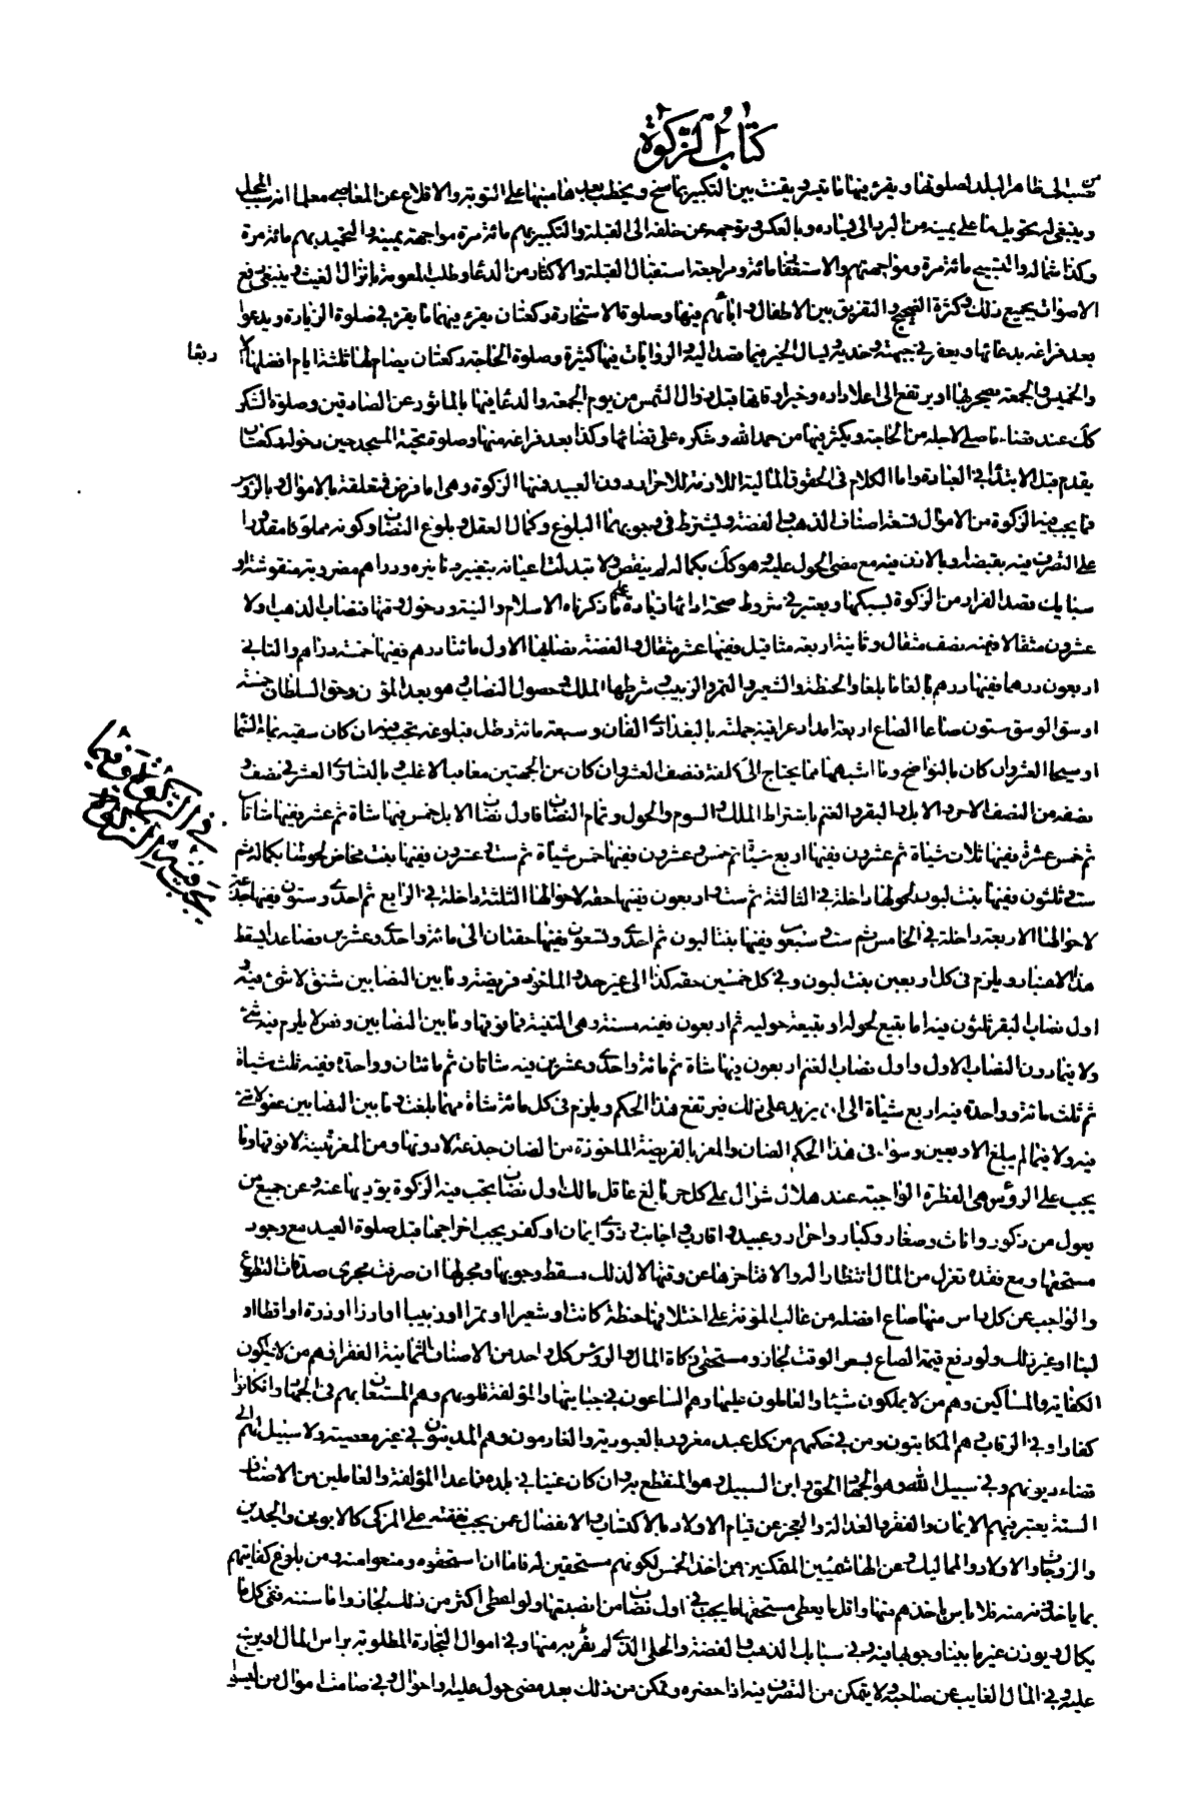 كتاب الزكوة
الى ظاهر البلد لصلوتها ويقرء فيها ما تيسر ويقنت بين التكبير بما سنح ويخطب بعدها منبها على التوبة والاقلاع عن المعاصى معلما انه سبب المحل
وينبغى له تحويل ما على يمينه من البرد الى يساره وبالعكس وتوجهه عن خلفه الى القبلة والتكبير بهم مائة مرة مواجهته يمينه والتحميد بهم مائة مرة
وكذا شماله والتسبيح مائة مرة ومواجهتهم والاستغفار مائة ومراجعة استقبال القبلة والاكثار من الدعاء وطلب المعونة بانزال الغيث وينبغى رفع
الاصوات بجميع ذلك وكثرة الضجيج والتفريق بين الاطفال وابائهم فيها وصلوة الاستخارة ركعتان يقرء فيهما ما يقرء فى صلوة الزيارة ويدعوا
بعد فراغه بدعائها ويعفر فى جبهته وخديه ويسال الخير فيما قصد اليه والروايات فيها كثيرة وصلوة الحاجة ركعتان يصام لها ثلثة ايام افضلها
والخميس والجمعة يصحر بها او يرتفع الى اعلا داره وخير اوقاتها قبل زوال الشمس من يوم الجمعة والدعاء فيها بالماثور عن الصادقين وصلوة الشكر
كك عند قضاء ما صلى لاجله من الحاجة ويكثر فيها من حمد الله وشكره على قضائها وكذا بعد فراغه منها وصلوة تحية المسجد حين دخوله ركعتان
يقدم قبل الابتداء فى العبادة واما الكلام فى الحقوق المالية اللازمة للاحرار دون العبيد فمنها الزكوة وهى اما فرض فمتعلقة بالاموال وبالرؤس
فما يجب فيه الزكوة من الاموال تسعة اصناف الذهب والفضة ويشترط فى وجوبهما البلوغ وكمال العقل وبلوغ النصاب وكونه مملوكا مقدورا
على التصرف فيه بقبضه او بالاذن فيه مع مضى الحول عليه وهو كك بكماله لم ينقص ولا تبدلت اعيانه بتغيير دنانيره ودراهم مضروبة منقوشة او
سبايك بقصد الفرار من الزكوة بسبكها ويعتبر فى شروط صحة ادائها زيادة على ما ذكرناه الاسلام والنية ودخول وقتها فنصاب الذهب اولا
عشرون مثقالا ففيه نصف مثقال وثانية اربعة مثاقيل ففيها عشر مثقال والفضة نصابها الاول مائتا درهم ففيها خمسة دراهم والثانى
اربعون درهما ففيها درهم بالغا ما بلغا والحنطة والشعير والتمر والزبيب وشرطها الملك وحصول النصاب وهو بعد المؤن وحق السلطان خمسة
اوسق الوسق ستون صاعا الصاع اربعة امداد عراقية جملته بالبغدادى الفان وسبعمائة رطل فبلوغه يجب فيه ان كان سقيه بماء السماء
او سيحا العشر وان كان بالنواضح وما اشبهها مما يحتاج الى كلفة فنصف العشر وان كان من الجهتين معا فبالاغلب وبالتساوى العشر فى نصف و
نصفه من النصف الاخر والابل والبقر والغنم باشتراط الملك والسوم والحول وتمام النصاب فاول نصاب الابل خمس فيها شاة ثم عشر ففيها شاتان
ثم خمس عشرة ففيها ثلاث شياة ثم عشرون ففيها اربع شياة ثم خمس وعشرون ففيها خمس شياة ثم ست وعشرون ففيها بنت مخاض لحولها بكماله ثم
ست وثلثون ففيها بنت لبون لحولها داخلة فى الثالثة ثم ست واربعون ففيها حقه لاحوالها الثلثة داخلة فى الرابع ثم احدى وستون ففيها جذعة
لاحوالها الاربعة داخلة فى الخامس ثم ست وسبعون ففيها بنتا لبون ثم احدى وتسعون ففيها حقتان الى مائة واحدى وعشرين فصاعدا يسقط
هذا الاعتبار ويلزم فى كل اربعين بنت لبون وفى كل خمسين حقه كذا الى غير حد والماخوذ فريضة وما بين النصابين شنق لاشئ فيه و
اول نصاب البقر ثلثون فيه اما تبيع لحوله او تبيعة حولية ثم اربعون ففيه مسنة وهى الثنية فما فوقها وما بين النصابين وقص لا يلزم فيه شئ
ولا فيما دون النصاب الاول واول نصاب الغنم اربعون فيها شاة ثم مائة واحدى وعشرين فيه شاتان ثم مائتان وواحدة ففيه ثلث شياة
ثم ثلث مائة وواحدة فيه اربع شياة الى ان يزيد على ذلك فيرتفع هذا الحكم ويلزم فى كل مائة شاة مهما بلغت وما بين النصابين عفو لا شئ
فيه ولا فيما لم يبلغ الاربعين وسواء فى هذا الحكم الضان والمعز والفريضة الماخوذة من الضان جذعة لا دونها ومن المعز ثنية لا فوقها وما
يجب على الرؤس هى الفطرة الواجبة عند هلال شوال على كل حر بالغ عاقل مالك اول نصاب يجب فيه الزكوة يؤديها عنه وعن جميع من
يعول من ذكور واناث وصغار وكبار واحرار وعبيد واقارب واجانب ذوى ايمان او كفر ويجب اخراجها قبل صلوة العيد مع وجود
مستحقها ومع فقده تعزل من المال انتظارا له والا فتاخيرها عن وقتها لا لذلك مسقط وجوبها ومجر لها ان صرفت مجرى صدقات التطوع
والواجب عن كل راس منها صاع افضله من غالب المؤنة على اختلافها حنطة كانت او شعيرا او تمرا او زبيبا او ارزا او ذرة او اقطا او
لبنا او غير ذلك ولو دفع قيمة الصاع بسعر الوقت لجاز ومستحقى زكاة المال والرؤس كل واحد من الاصناف الثمانية الفقراء هم من لا يملكون
الكفاية والمساكين وهم من لا يملكون شيئا والعاملون عليها وهم الساعون فى جبايتها والمؤلفة قلوبهم وهم المستعان بهم فى الجهاد وان كانوا
كفارا وفى الرقاب هم المكاتبون ومن فى حكمهم من كل عبد مغرور بالعبودية والغارمون وهم المدينون فى غير معصية ولا سبيل لهم الى
قضاء ديونهم وفى سبيل الله وهو الجهاد الحق وابن السبيل وهو المنقطع به وان كان غنيا فى بلده فما عدا المؤلفة والعاملين من الاصناف
الستة يعتبر فيهم الايمان والفقر والعدالة والعجز عن قيام الاولاد بالاكتساب والانفصال عمن يجب نفقته على المزكى كالابوين والجدين
والزوجات والاولاد والمماليك وعن الهاشميين المتمكنين من اخذ الخمس لكونهم مستحقين له فاما ان استحقوه ومنعوا منه ومن بلوغ كفايتهم
بما ياخذونه منه فلا باس باخذهم منها واقل ما يعطى مستحقها ما يجب فى اول نصاب من انصبتها ولو اعطى اكثر من ذلك لجاز واما سننه ففى كل ما
يكال ويوزن غير ما بينا وجوبها فيه وفى سبايك الذهب والفضة والحلى الذى لم يفر به منها وفى اموال التجارة المطلوبة براس المال او بربح
عليه وفى المال الغايب عن صاحبه ولا يتمكن من التصرف فيه اذا حضره وتمكن من ذلك بعد مضى حول عليه او احوال وفى صامت اموال من ليس
فى الزكوة وفيما
يجب فيه الزكوة